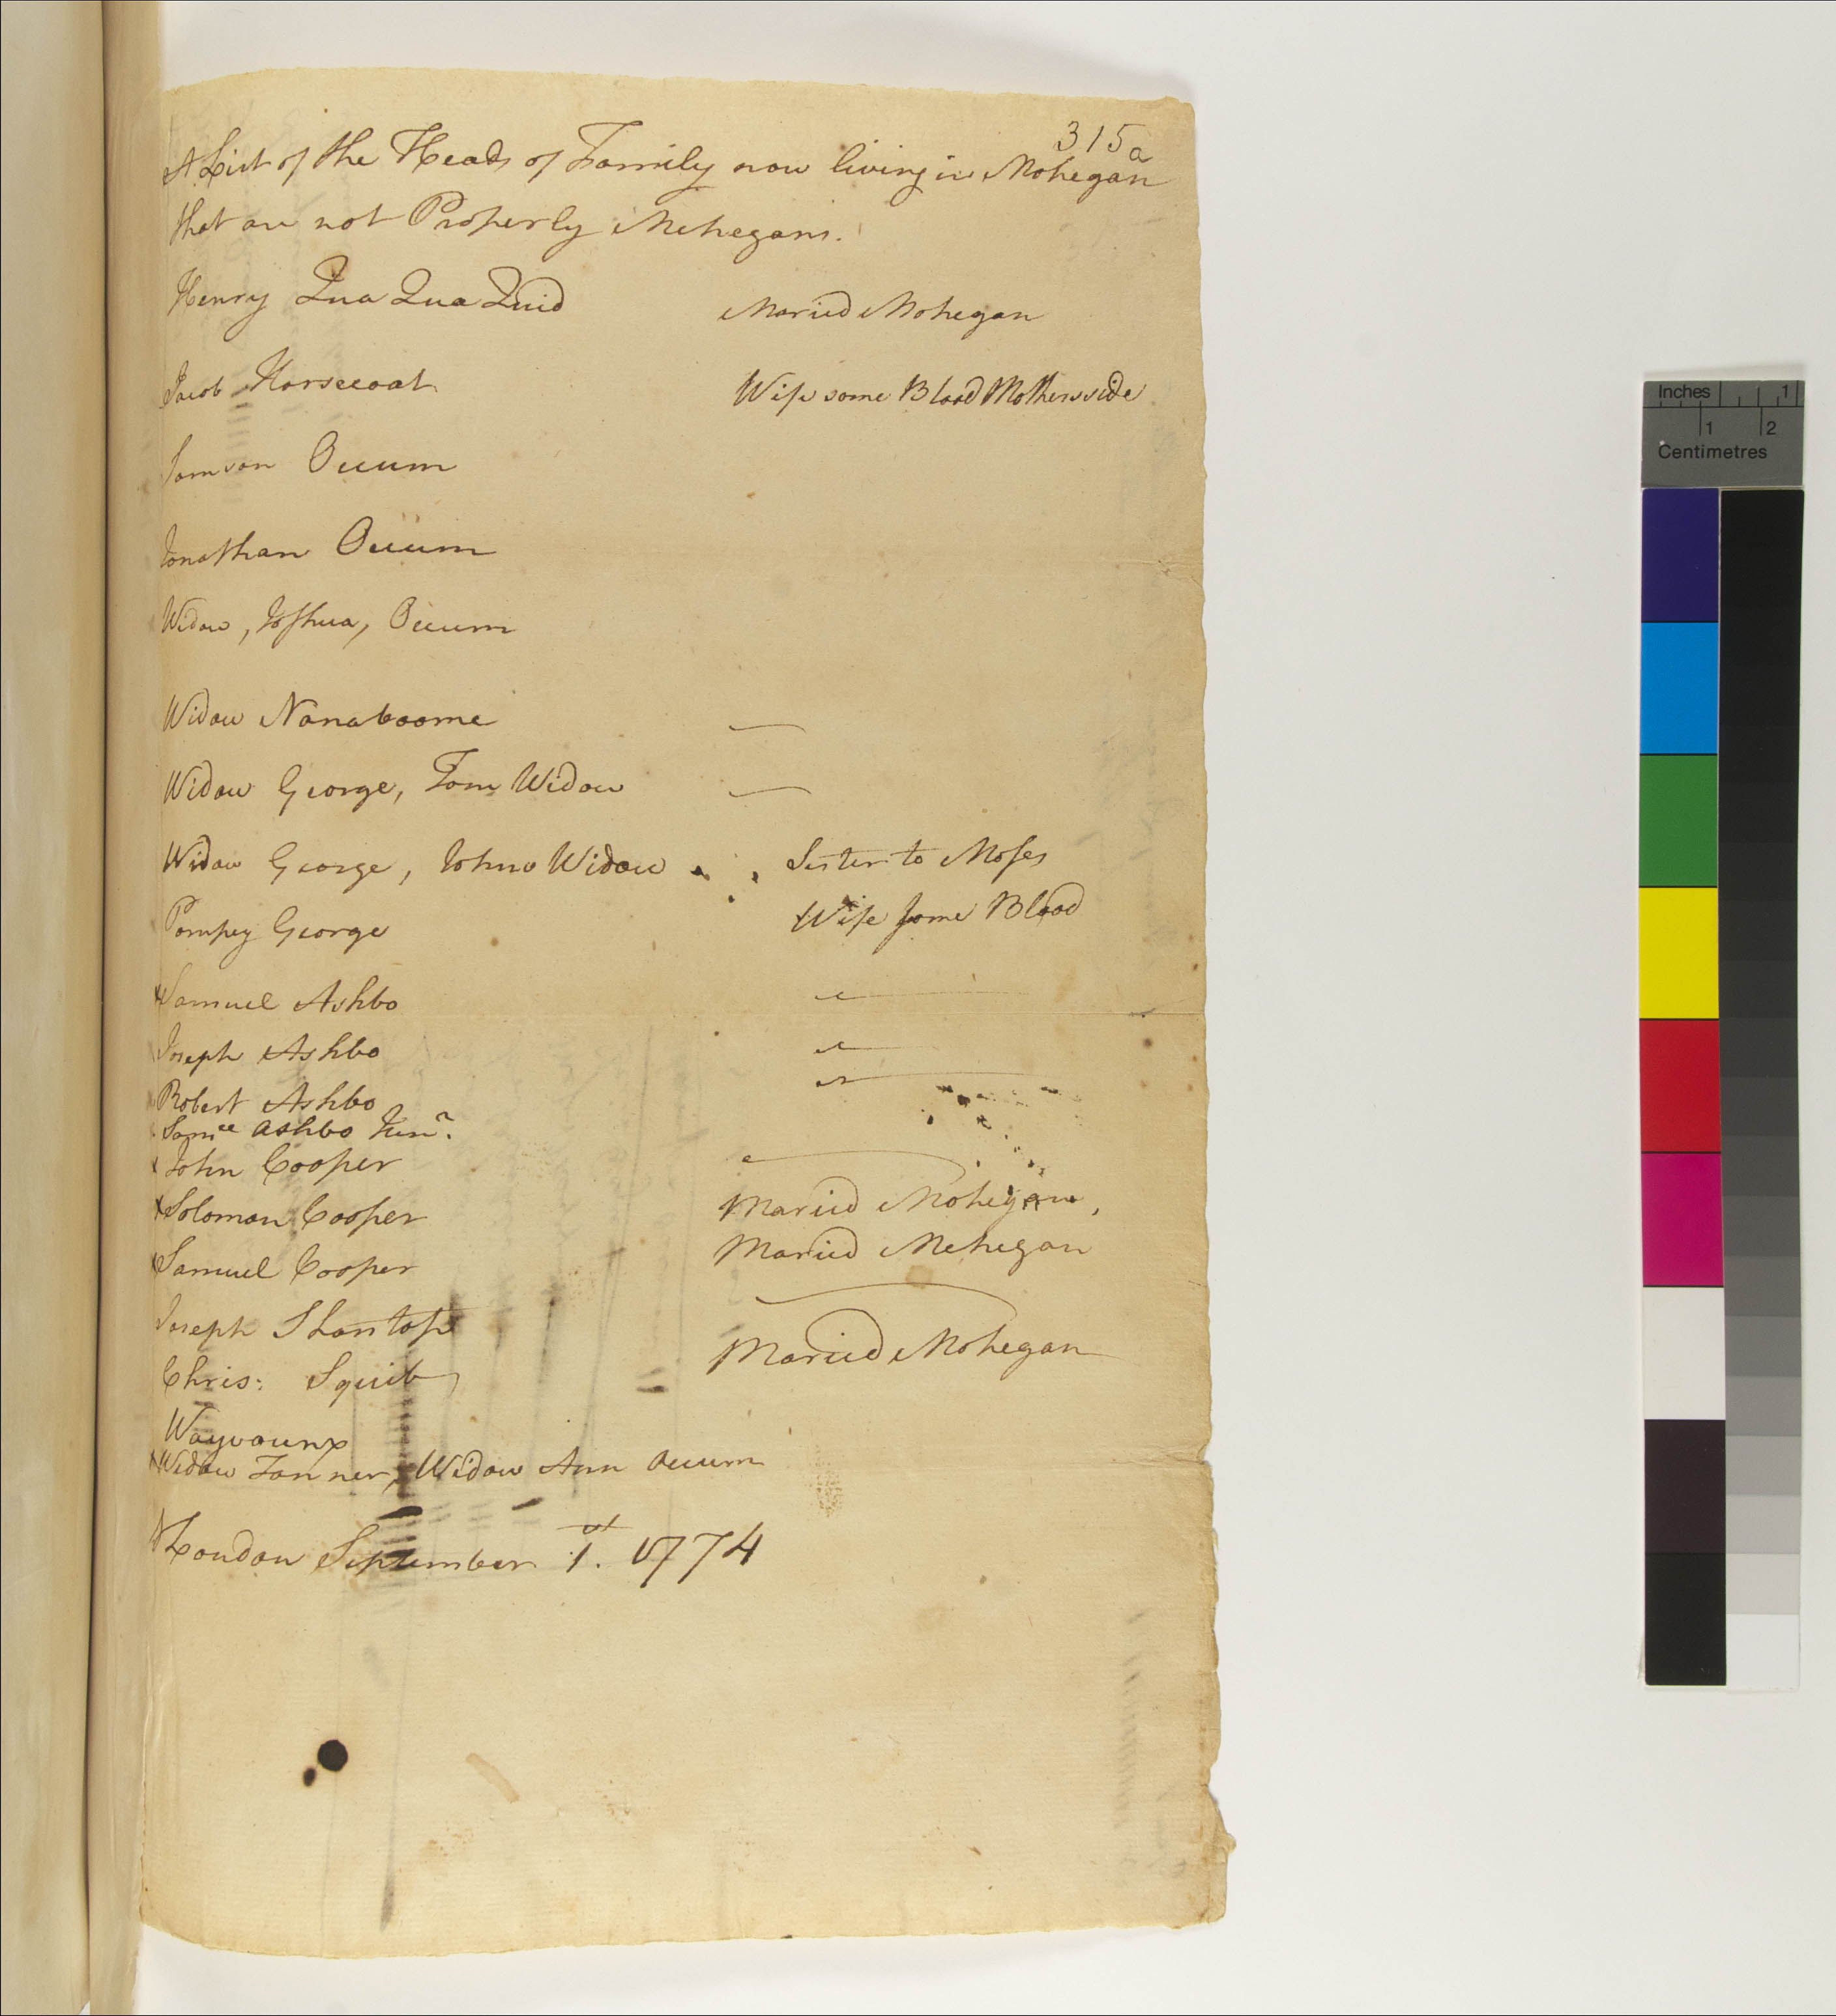 315a
A List of the Heads of Family now living in Mohegan
that are not Properly Mohegans.
Henry Qua Qua Quid Maried Mohegan
Jacob Horsecoat Wife some Blood Mothers side
Samson Occum
Jonathan Occum
Widow, Joshua, Occum
Widow Nanaboome
Widow George, Tom Widow
Widow George, Johns Widow Sister to Moses
Pompey George Wife some Blood
x Samuel Ashbo
Joseph Ashbo
Robert Ashbo
Samll Ashbo Junr.
x John Cooper
x Solomon Cooper Maried Mohegan,
x Samuel Cooper Maried Mohegan
Joseph Shantop
Chris: Squib Maried Mohegan
Wayvounx
x Widow Tanner, Widow Ann Occum
N London September 1st. 1774
Inches 1
1 2
Centimetres